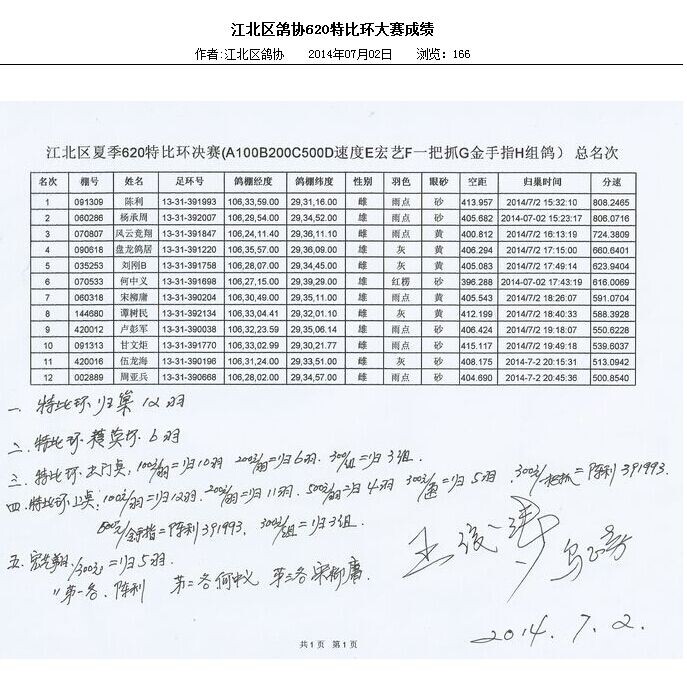 江北区鸽协620特比环大赛成绩
作者:江北区鸽协 2014年07月02日 浏览：166
江北区夏季620特比环决赛(A100B200C500D速度E宏艺F一把抓G金手指H组鸽） 总名次
名次 棚号 姓名 足环号 鸽棚经度 鸽棚纬度 性别 羽色 眼砂 空距 归巢时间 分速
1 091309 陈利 13-31-391993 106,33,59.00 29,31,16.00 雌 雨点 砂 413.957 2014/7/2 15:32:10 808.2465
2 060286 杨承周 13-31-392007 106,29,54.00 29,34,52.00 雌 雨点 砂 405.682 2014-07-02 15:23:17 806.0716
3 070807 风云竞翔 13-31-391847 106,24,11.40 29,36,11.10 雌 雨点 黄 400.812 2014/7/2 16:13:19 724.3809
4 090618 盘龙鸽居 13-31-391220 106,35,57.00 29,36,09.00 雌 灰 黄 406.294 2014/7/2 17:15:00 660.6401
5 035253 刘刚B 13-31-391758 106,28,07.00 29,34,45.00 雌 灰 砂 405.083 2014/7/2 17:49:14 623.9404
6 070533 何中义 13-31-391698 106,27,15.00 29,39,29.00 雌 红楞 砂 396.288 2014-07-02 17:43:19 616.0069
7 060318 宋柳庸 13-31-390204 106,30,49.00 29,35,11.00 雌 雨点 黄 405.543 2014/7/2 18:26:07 591.0704
8 144680 谭树民 13-31-392134 106,33,04.41 29,32,01.10 雌 灰 黄 412.199 2014/7/2 18:40:33 588.3928
9 420012 卢彭军 13-31-390038 106,32,23.59 29,35,06.14 雌 雨点 砂 406.424 2014/7/2 19:18:07 550.6228
10 091313 甘文炬 13-31-391770 106,33,02.99 29,30,21.77 雌 雨点 砂 415.117 2014/7/2 19:49:18 539.6037
11 420016 伍龙海 13-31-390196 106,31,24.00 29,33,51.00 雌 灰 砂 408.175 2014-7-2 20:15:31 513.0942
12 002889 周亚兵 13-31-390668 106,28,02.00 29,34,57.00 雌 雨点 砂 404.690 2014-7-2 20:45:36 500.8540
一 特比环归巢12羽
二. 特比环 6羽
三. 特比环 100元/羽=归10羽 200元/羽=归6羽. 300元/组=归3组.
四. 特比环上奖: 100元/羽=归12羽. 200元/羽=归11羽. 500元/羽=归4羽 300元/速=归5羽. 300元/一把抓=陈利391993.
500元/金手指=陈利391993. 300元/组=归3组.
五. 300元=归5羽.
第一名. 陈利 第二名何中义 第三名宋柳庸.
2014. 7. 2.
共1页 第1页